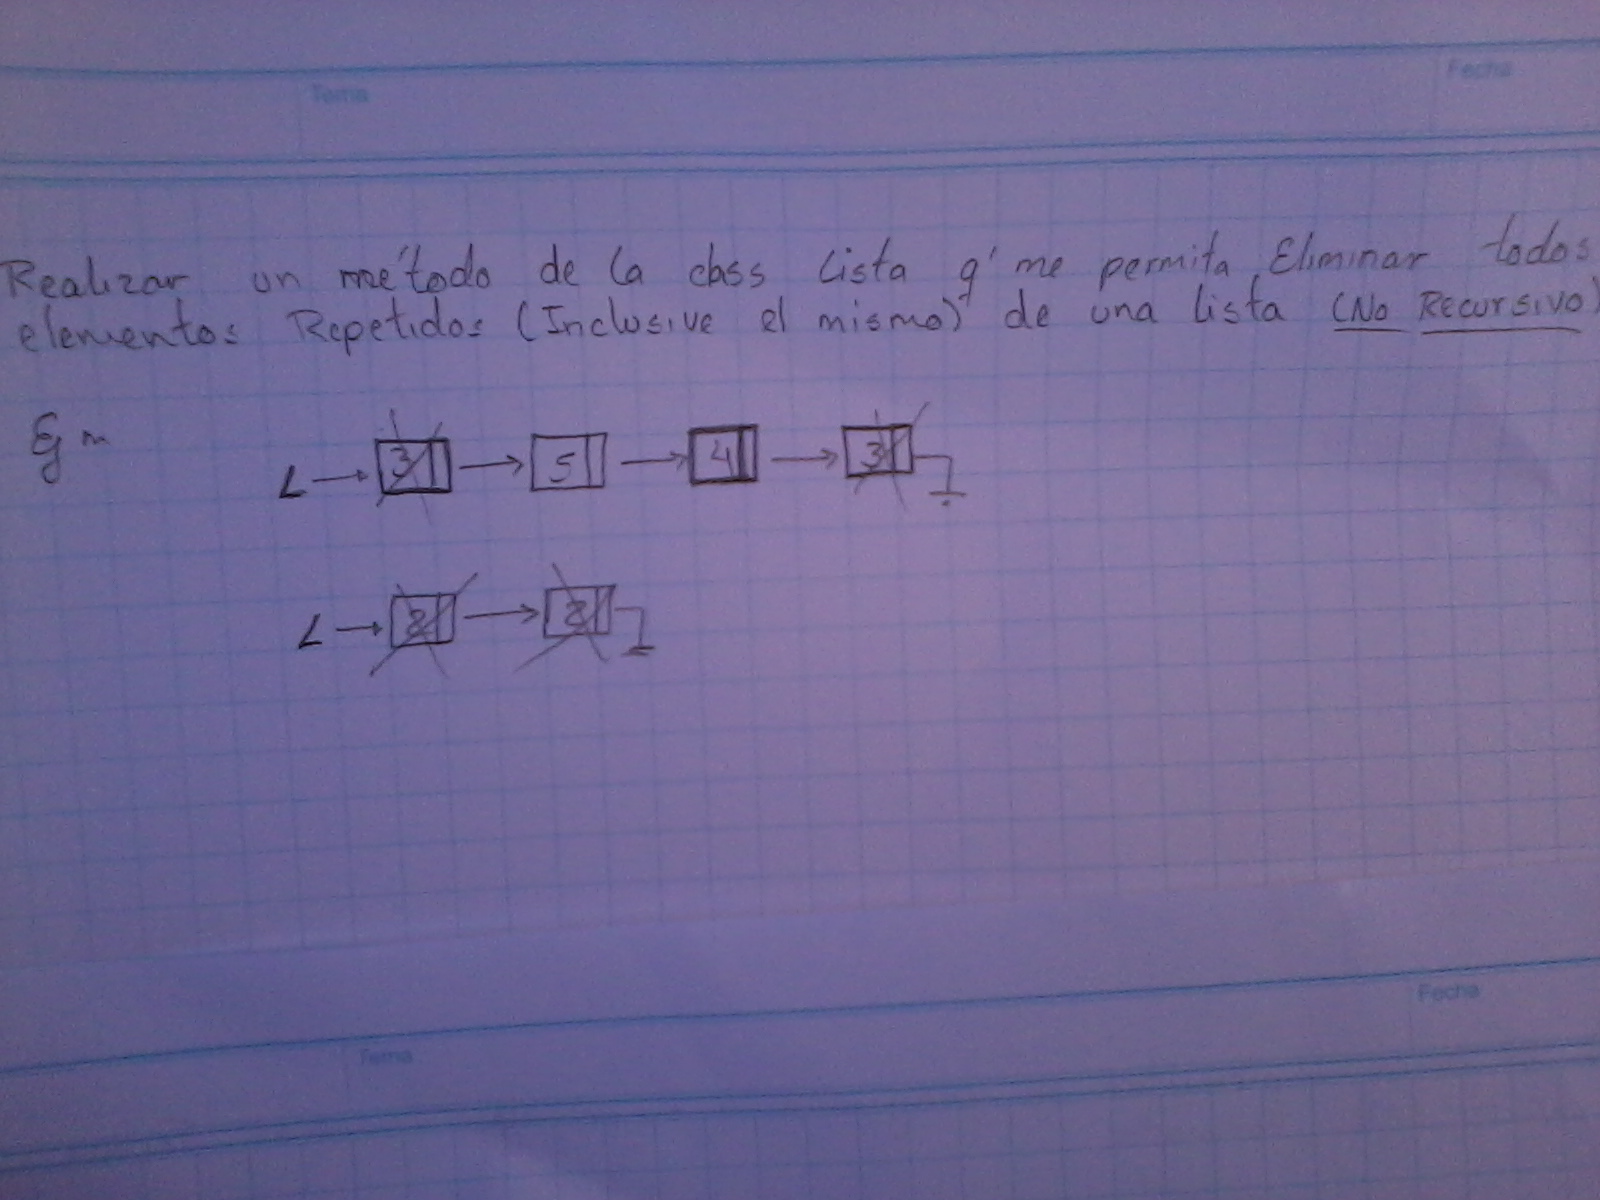 Tema
Fecha
Realizar un método de la class Lista q' me permita Eliminar todos
elementos Repetidos (Inclusive el mismo) de una lista (No Recursivo)
Ejm
L → 3 → 5 → 4 → 3
L → 2 → 2
Fecha
Tema